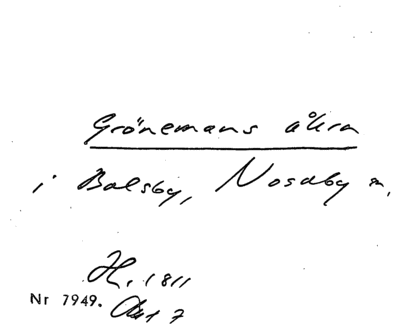 Grönemans åkrn
i Balsby, Nosaby sn,
H. 1811
Nr 7949. Akt 7